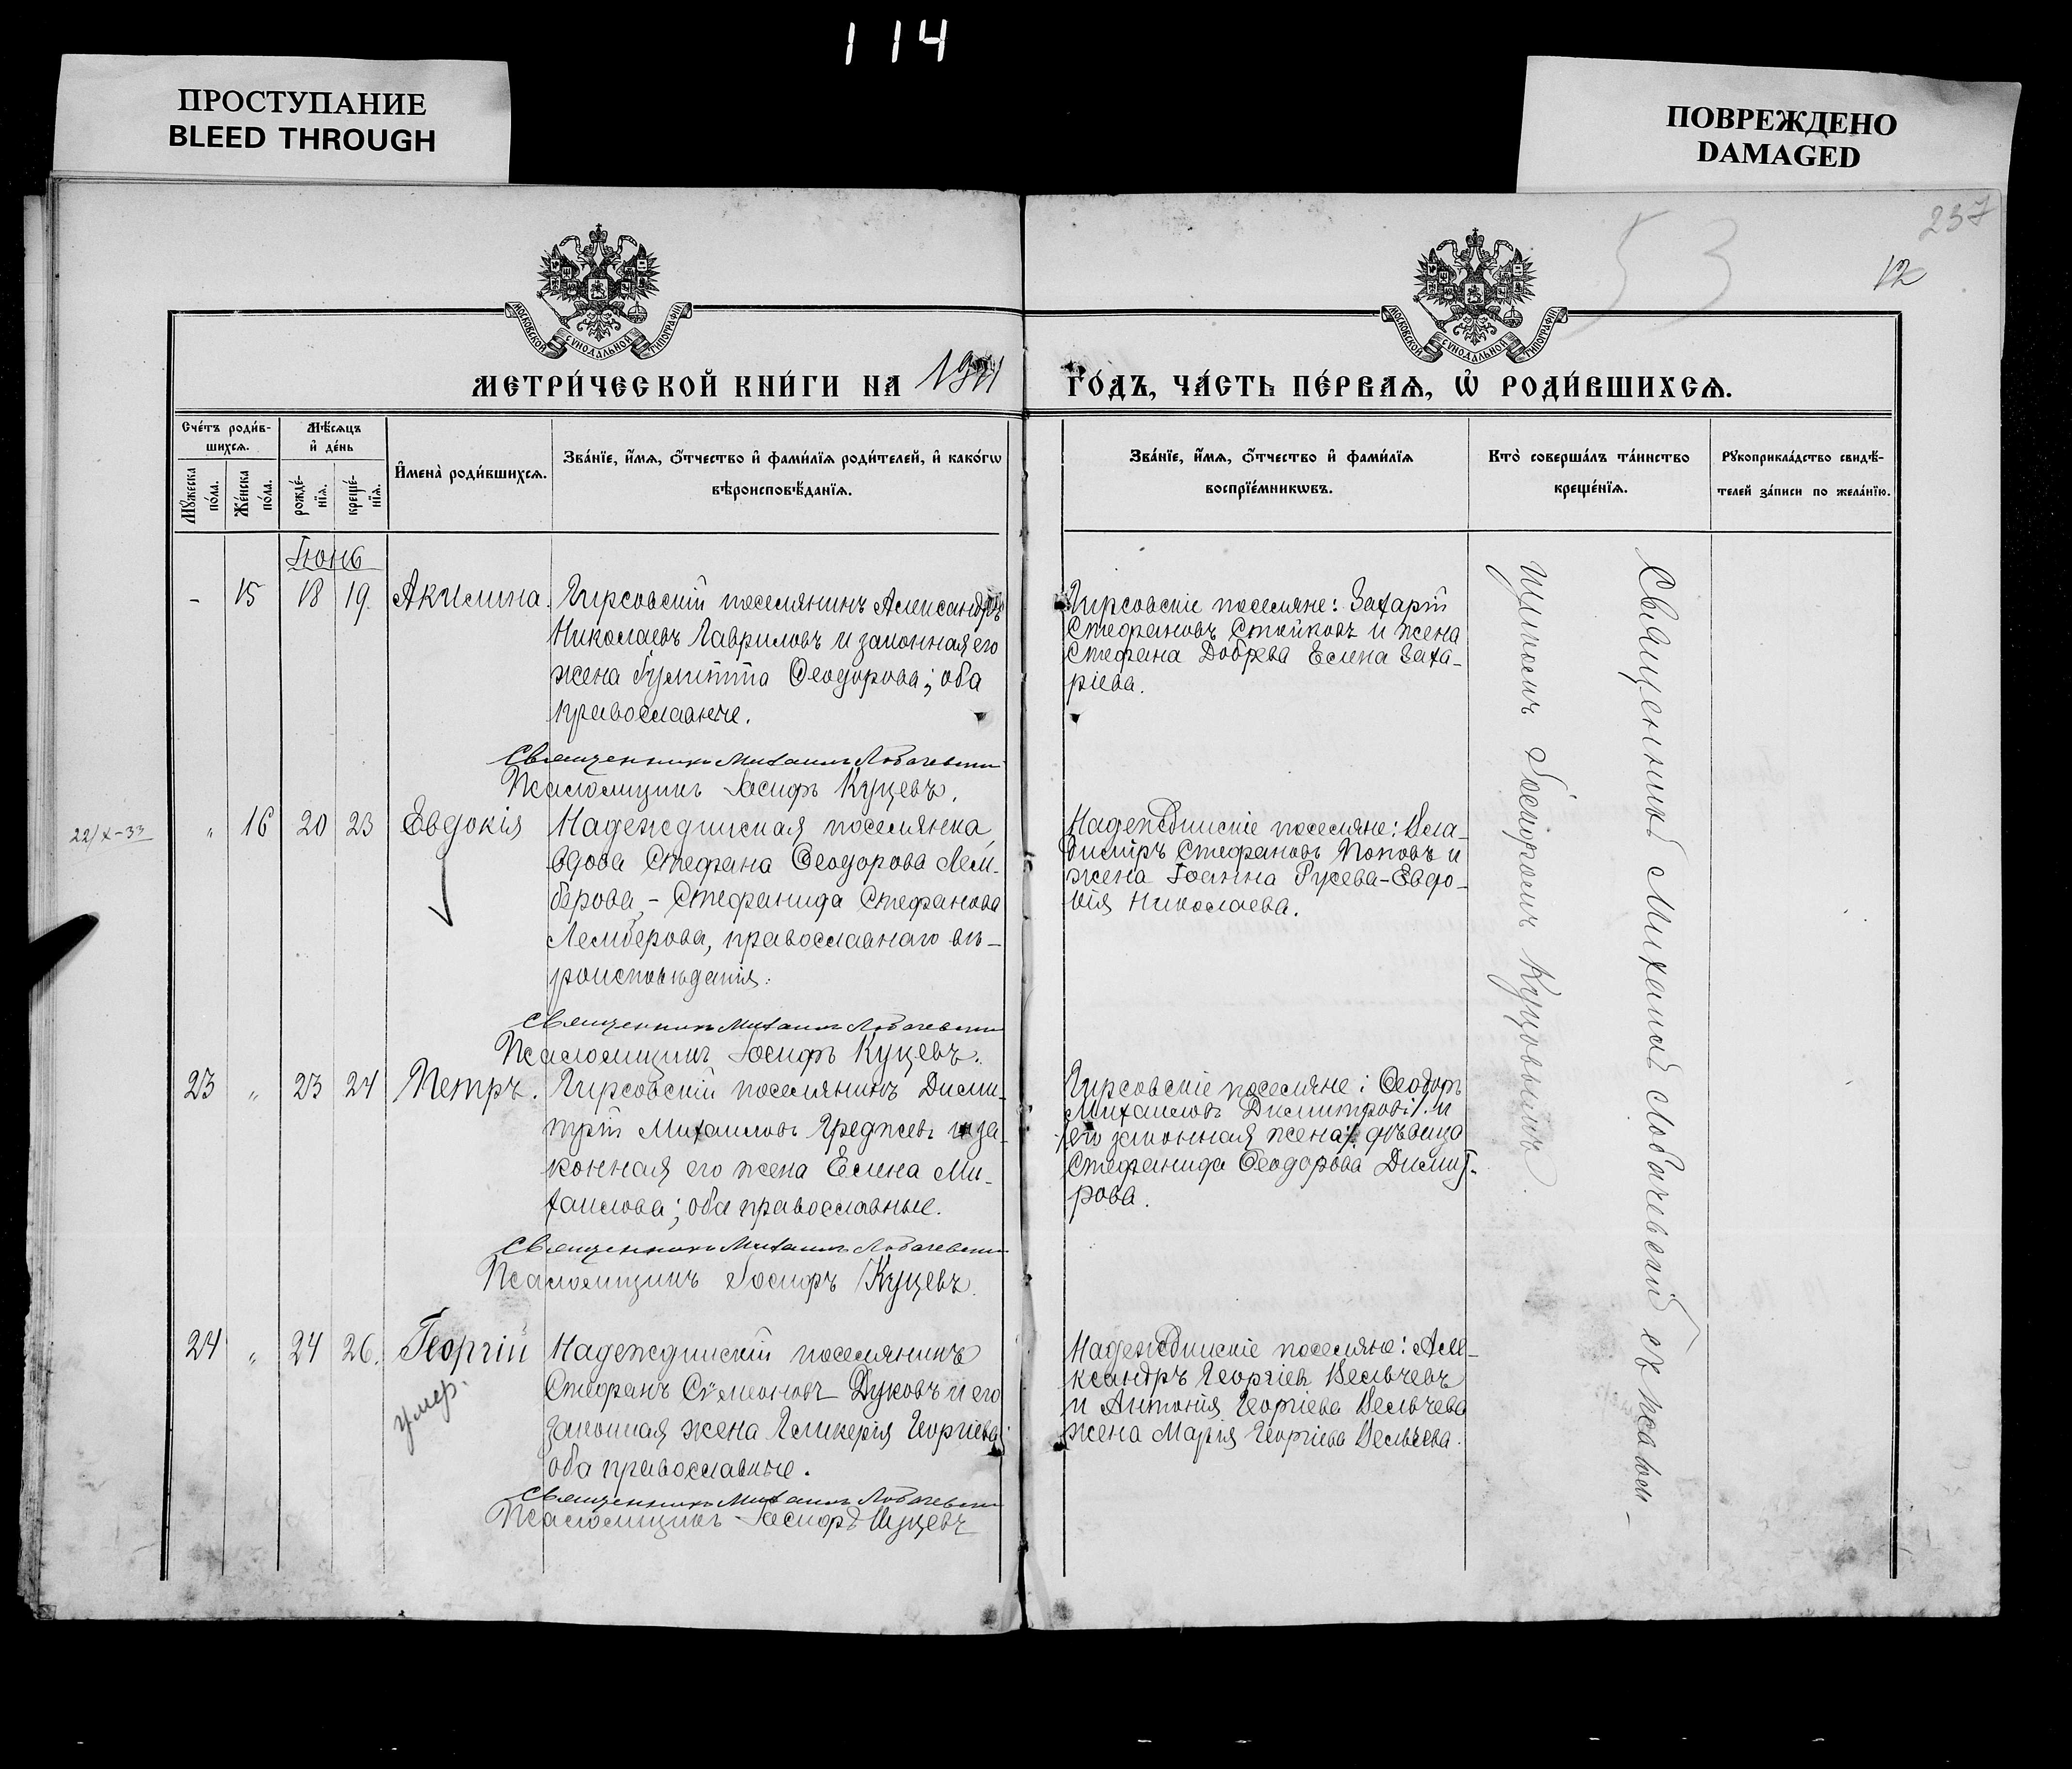 114
ПРОСТУПАНИЕ
BLEED THROUGH
ПОВРЕЖДЕНО
DAMAGED
237
53
12
МОСКОВСКОЙ СѴНОДАЛЬНОЙ ТИПОГРАФІИ
МОСКОВСКОЙ СѴНОДАЛЬНОЙ ТИПОГРАФІИ
МЕТРИ́ЧЕСКОЙ КНИ́ГИ НА 1911
ГО́ДЪ, ЧА́СТЬ ПЕ́РВАѦ, Ѡ҆ РОДИ́ВШИХСѦ.
Сче́тъ роди́в-
шихсѧ.
Мѣ́сѧцъ
и҆ де́нь
Мꙋ́жеска
по́ла.
Же́нска
по́ла.
рожде́-
нїѧ.
креще́-
нїѧ.
И҆мена̀ роди́вшихсѧ.
Зва́нїе, и҆́мѧ, ѻ҆́тчество и҆ фами́лїѧ роди́телей, и҆ како́гѡ
вѣроисповѣ́данїѧ.
Зва́нїе, и҆́мѧ, ѻ҆́тчество и҆ фами́лїѧ
воспрїе́мникѡвъ.
Кто̀ соверша́лъ та́инство
креще́нїѧ.
Рꙋкоприкла́дство свидѣ́-
телей за́писи по жела́нїю.
Іюнь
- 15 18 19. Акилина.
Гирсовскій поселянинъ Александръ
Николаевъ Гавриловъ и законная его
жена Іулитта Ѳеодорова; оба
православные.
Священникъ Михаилъ Лобачевскій
Псаломщикъ Іосифъ Куцевъ.
Гирсовскіе поселяне: Захарій
Стефановъ Стойковъ и жена
Стефана Добрева Елена Заха-
ріева.
22/X-33
" 16 20 23 Евдокія
Надеждинская поселянка
вдова Стефана Ѳеодорова Лем-
берова, - Стефанида Стефанова
Лемберова, православнаго вѣ-
роисповѣданія.
Священникъ Михаилъ Лобачевскій
Псаломщикъ Іосифъ Куцевъ.
Надеждинскіе поселяне: Вла-
димiръ Стефановъ Поповъ и
жена Іоанна Русева-Евдо-
кія Николаева.
23 " 23 24 Петръ.
Гирсовскій поселянинъ Дими-
трій Михаиловъ Греджевъ и за-
конная его жена Елена Ми-
хаилова; оба православные.
Священникъ Михаилъ Лобачевскій
Псаломщикъ Іосифъ Куцевъ.
Гирсовскіе поселяне: Ѳеодоръ
Михаиловъ Димитровъ /. и
его законная жена /. дѣвица
Стефанида Ѳеодорова Димит-
рова.
24 " 24 26. Георгій
умер.
Надеждинскій поселянинъ
Стефанъ Сѵмеоновъ Дуковъ и его
законная жена Гликерія Георгіева;
оба православные.
Священникъ Михаилъ Лобачевскій
Псаломщикъ Іосифъ Куцевъ
Надеждинскіе поселяне: Але-
ксандръ Георгіевъ Вельчевъ
и Антонія Георгіева Вельчева
жена Марія Георгіева Вельчева.
Священникъ Михаилъ Лобачевскій съ псалом-
щикомъ Іосифомъ Куцовымъ.